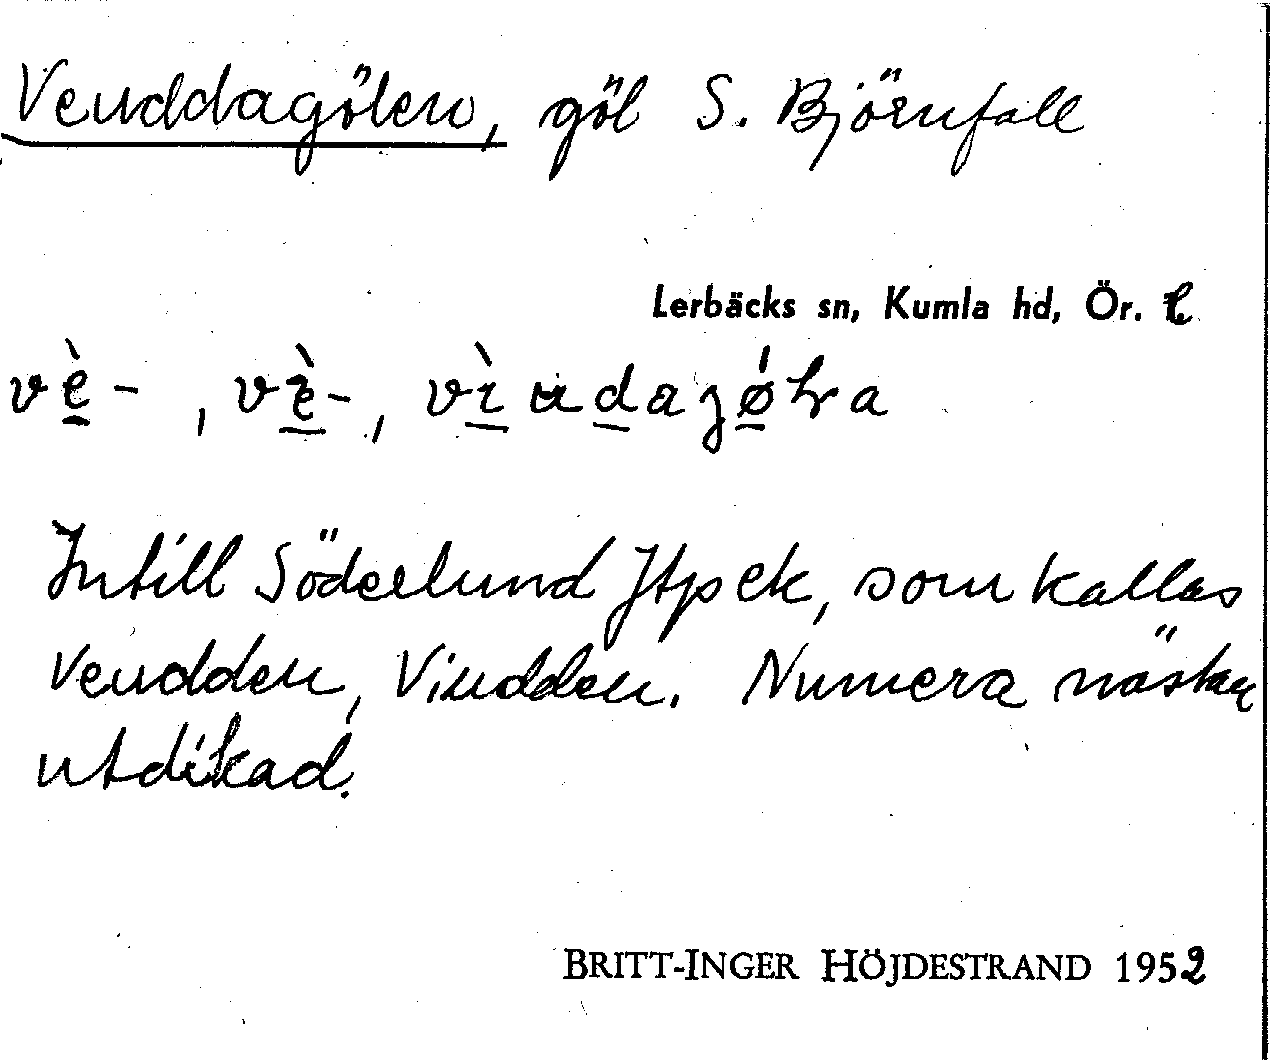 Venddagölen, göl S. Björnfall
Lerbäcks sn, Kumla hd, Ör. l.
Intill Söderlund Jtp ek, som kallas
Vendden, Vindden. Numera nästan
utdikad.
BRITT-INGER HÖJDESTRAND 1952